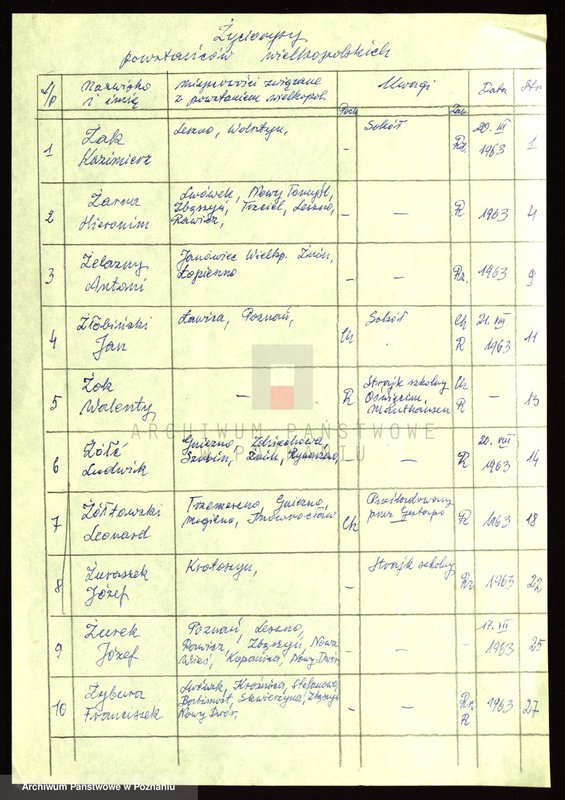 Życiorysy
powstańców wielkopolskich
L/p Nazwisko i imię Miejscowości związane z powstaniem wielkopol. Poch. Uwagi Zaw. Data Str.
1 Żak Kazimierz Leszno, Wolsztyn, - Sokół Rz. 20. III 1963 1
2 Żarna Hieronim Lwówek, Nowy Tomyśl, Zbąszyń, Trzciel, Leszno, Rawicz, - - R 1963 4
3 Żelazny Antoni Janówiec Wielkp. Żnin, Łopienno - - Rz. 1963 9
4 Żłobiński Jan Ławica, Poznań, Ch Sokół Ch R 21. VII 1963 11
5 Żok Walenty - R Strajk szkolny Oświęcim, Mauthausen Ch R - 13
6 Żółć Ludwik Gniezno, Zdziechowa, Szubin, Żnin, - - R 20. VII 1963 14
7 Żółtowski Leonard Trzemeszno, Gniezno, Mogilno, Inowrocław Ch przez Gestapo R 1963 18
8 Żuraszek Józef Krotoszyn, - Strajk szkolny Rz 1963 22
9 Żurek Józef Poznań, Leszno, Rawicz, Zbąszyń, Nowa Wieś, Kopanica, Nowy Dwór - - - 17. VII 1963 25
10 Żybura Franciszek Lwówek, Krośnica, Stefanowo, Babimost, Zbąszyń Nowy Dwór, - - Rz. R 1963 27
ARCHIWUM PAŃSTWOWE
W POZNANIU
Archiwum Państwowe w Poznaniu